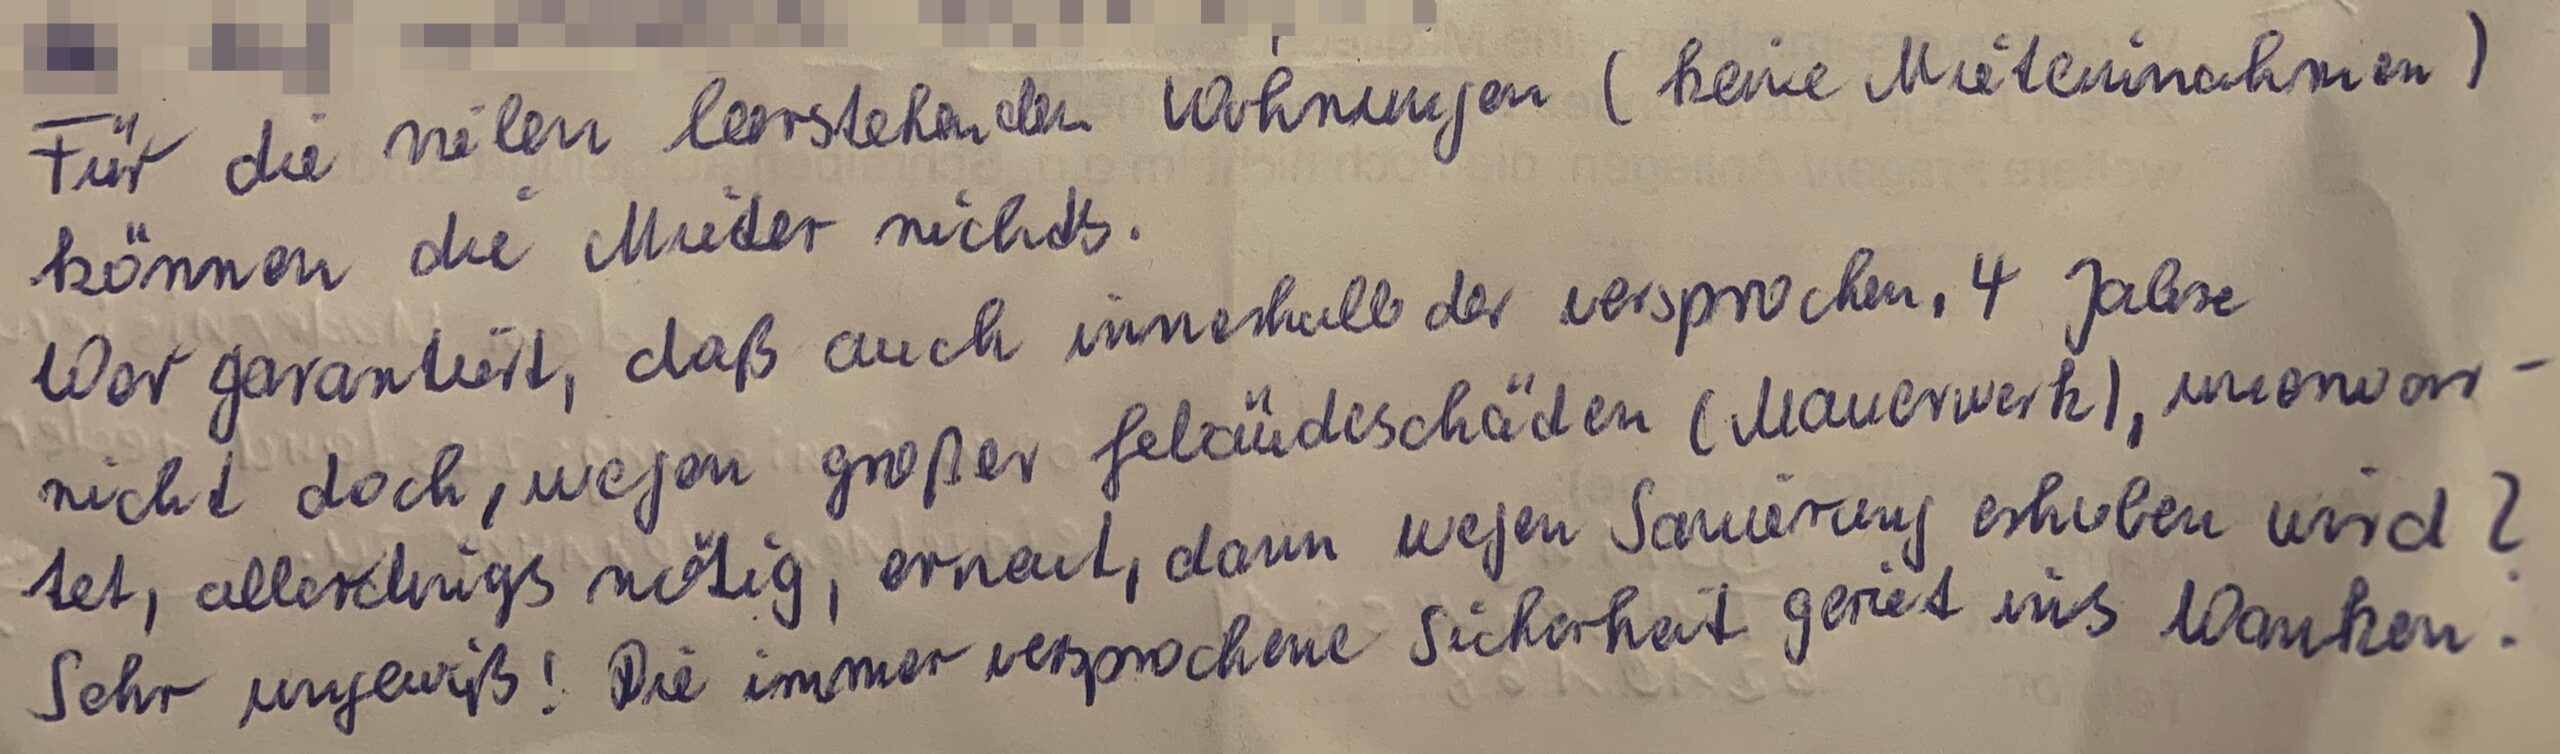 Für die vielen leerstehenden Wohnungen (keine Mieteinnahmen)
können die Mieter nichts.
Wer garantiert, daß auch innerhalb der versprochen. 4 Jahre
nicht doch, wegen großer Gebäudeschäden (Mauerwerk), unerwar-
tet, allerdings nötig, erneut, dann wegen Sanierung erhoben wird?
Sehr ungewiß! Die immer versprochene Sicherheit geriet ins Wanken.